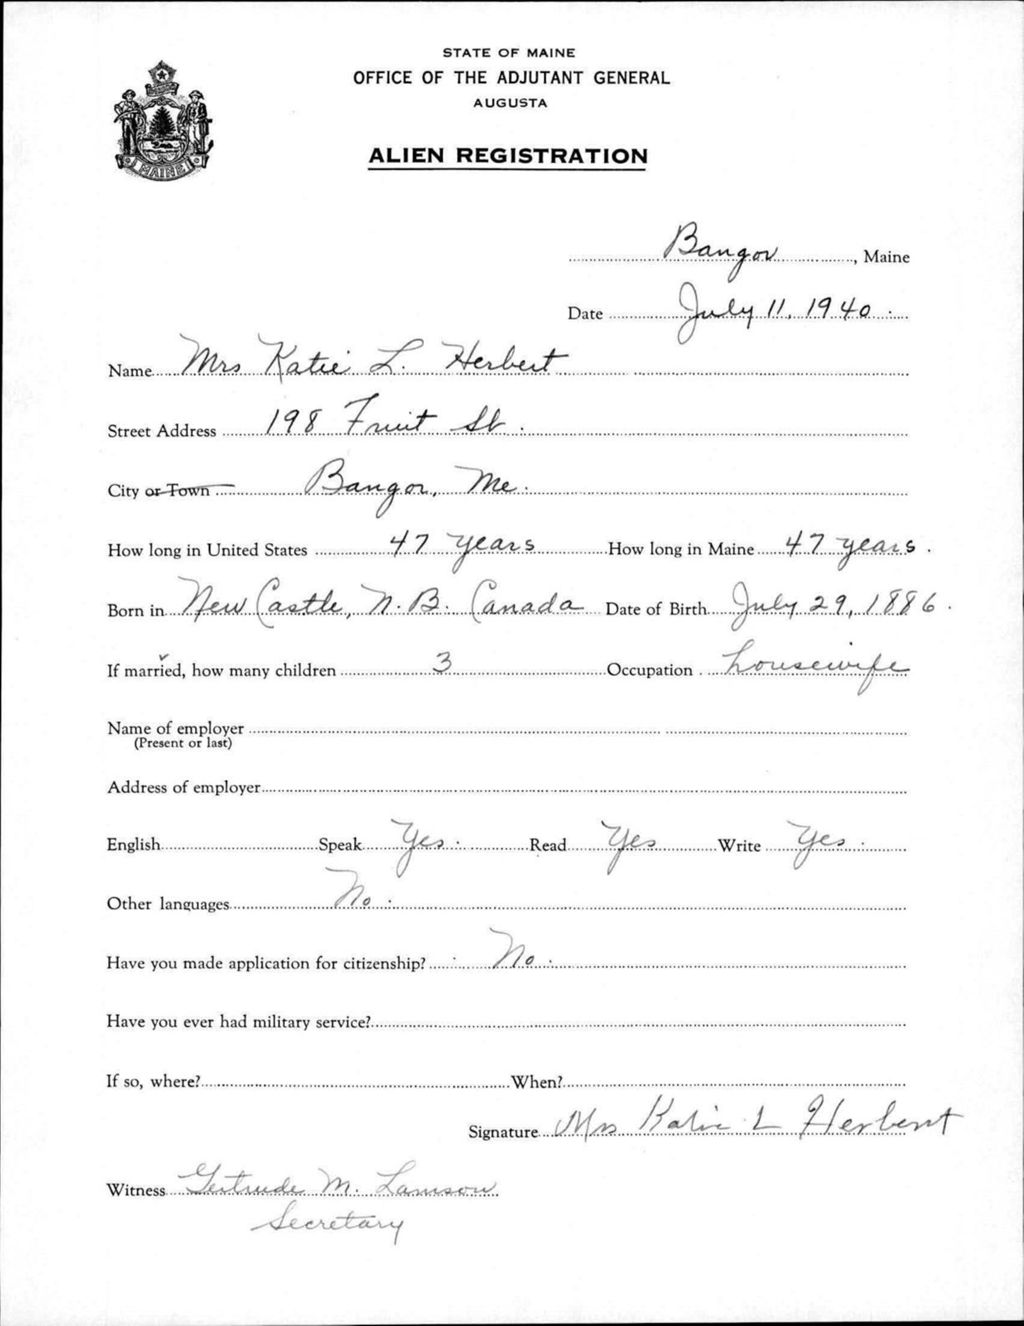 STATE OF MAINE
OFFICE OF THE ADJUTANT GENERAL
AUGUSTA
ALIEN REGISTRATION
MAINE
Bangor, Maine
Date July 11, 1940.
Name Mrs Katie L. Herbert
Street Address 198 Fruit St.
City or Town Bangor, Me.
How long in United States 47 years How long in Maine 47 years.
Born in New Castle, N.B. Canada Date of Birth July 29, 1886.
If married, how many children 3 Occupation housewife
Name of employer
(Present or last)
Address of employer
English Speak Yes. Read Yes Write Yes.
Other languages No.
Have you made application for citizenship? No.
Have you ever had military service?
If so, where? When?
Signature Mrs Katie L Herbert
Witness Gertrude M. Lamson
Secretary